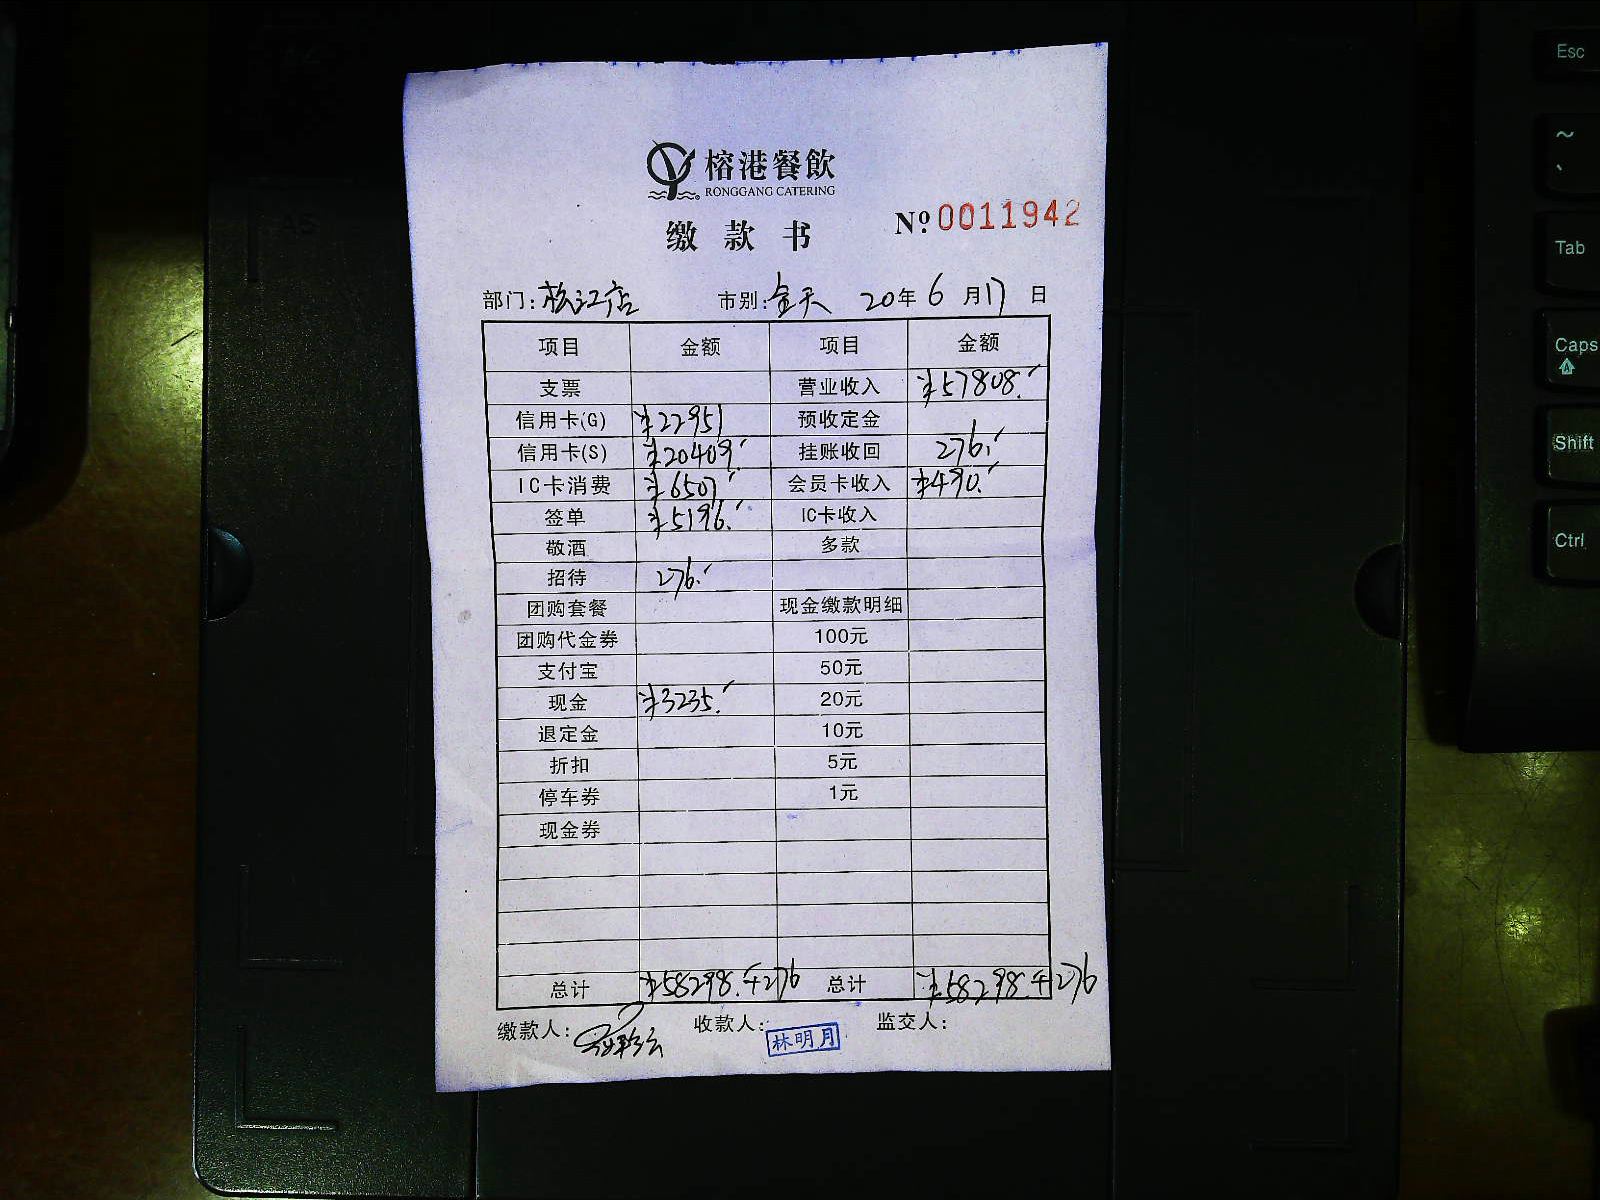 榕港餐飲
RONGGANG CATERING
缴款书
№ 0011942
部门: 松江店 市别: 全天 20年 6月17日
项目 金额 项目 金额
支票 营业收入 ¥57808.
信用卡(G) ¥22951 预收定金
信用卡(S) ¥20409. 挂账收回 276.
IC卡消费 ¥6507. 会员卡收入 ¥490.
签单 ¥5196. IC卡收入
敬酒 多款
招待 276.
团购套餐 现金缴款明细
团购代金券 100元
支付宝 50元
现金 ¥3235. 20元
退定金 10元
折扣 5元
停车券 1元
现金券
总计 ¥58298.+276 总计 ¥58298.+276
缴款人: 收款人: 林明月 监交人:
Esc
~
Tab
Caps
Shift
Ctrl
A5